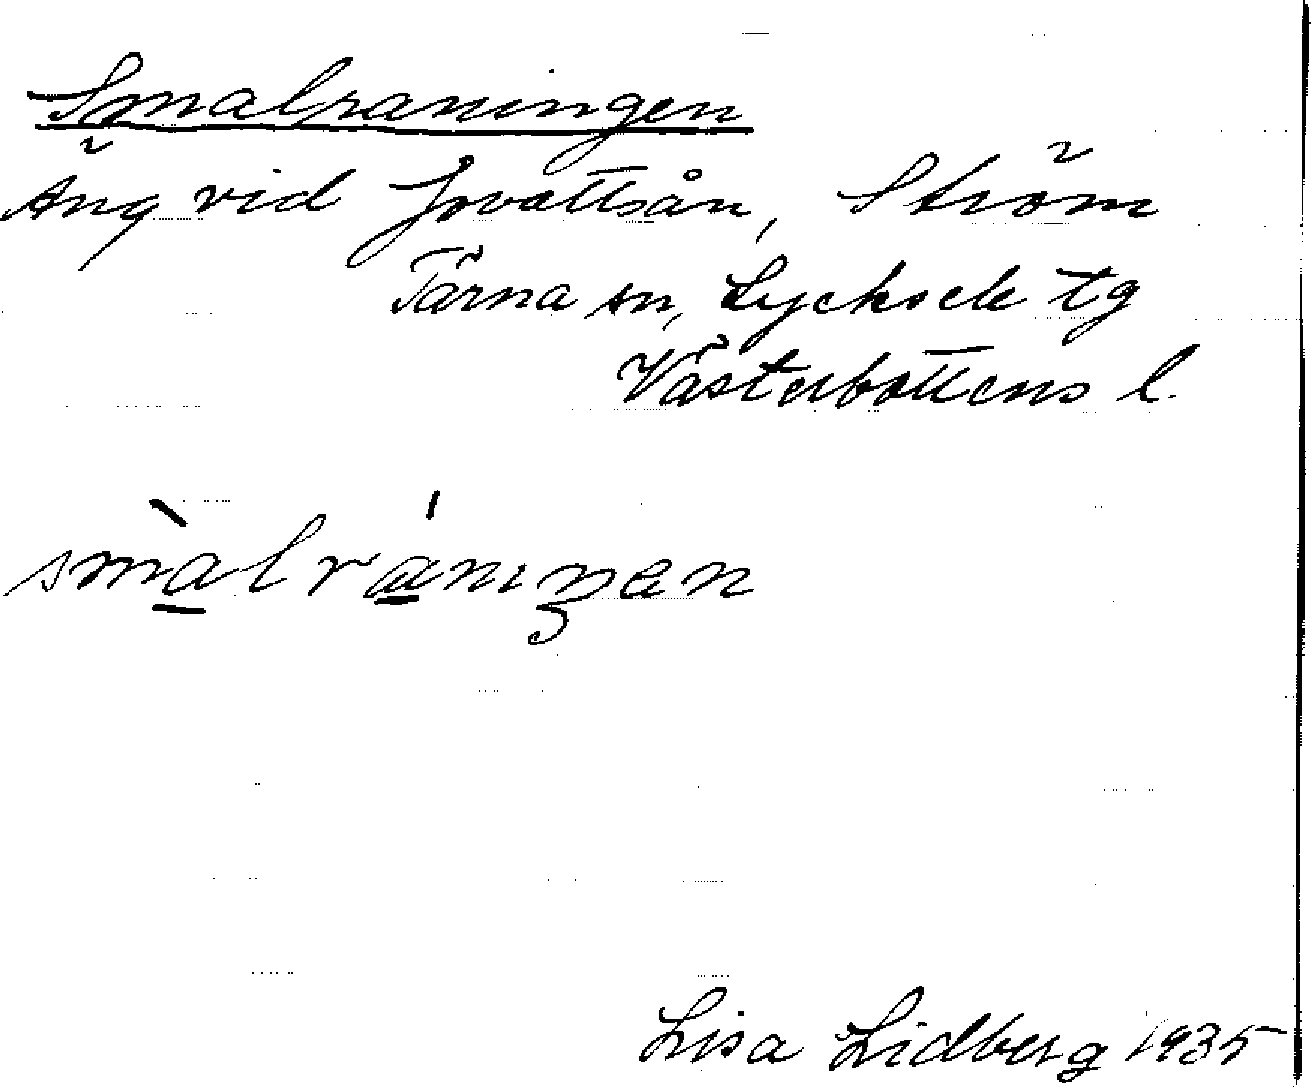 Smalraningen
Äng vid Jovattsån, Ström
Tärna sn, Lycksele tg
Västerbottens l.
smàlránıŋen
Lisa Lidberg 1935